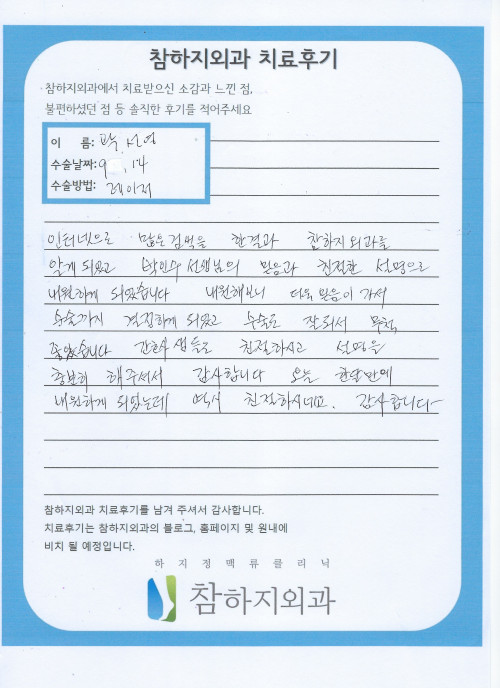 참하지외과 치료후기
참하지외과에서 치료받으신 소감과 느낀 점,
불편하셨던 점 등 솔직한 후기를 적어주세요
이 름: 곽 선영
수술날짜: 9 . 14
수술방법: 레이저
인터넷으로 많은 검색을 한결과 참하지외과를
알게 되었고 박인수 선생님의 믿음과 친절한 설명으로
내원하게 되었습니다 내원해보니 더욱 믿음이 가서
수술까지 결정하게 되었고 수술도 잘되서 무척
좋았습니다 간호사 쌤들도 친절하시고 설명을
충분히 해주셔서 감사합니다 오늘 한달만에
내원하게 되었는데 역시 친절하시네요. 감사합니다~
참하지외과 치료후기를 남겨 주셔서 감사합니다.
치료후기는 참하지외과의 블로그, 홈페이지 및 원내에
비치 될 예정입니다.
하지정맥류클리닉
참하지외과